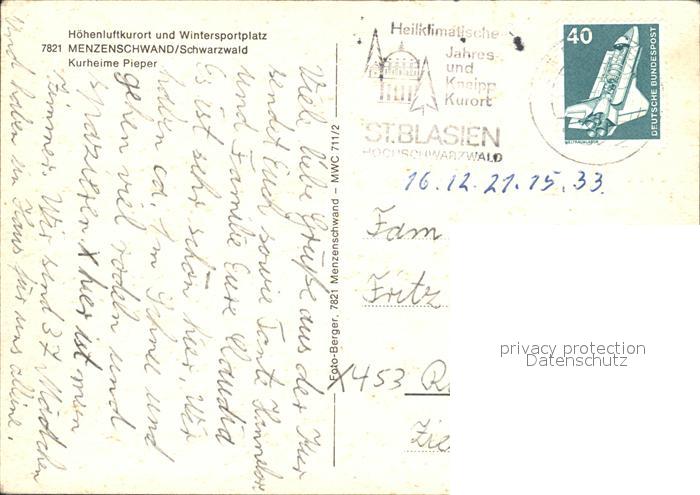 Höhenluftkurort und Wintersportplatz
7821 MENZENSCHWAND/Schwarzwald
Kurheime Pieper
Viele liebe Grüße aus der Kur
sendet Euch sowie Tante Hannelore
und Familie Eure Claudia
Es ist sehr schön hier. Wir
haben ca. 1m Schnee und
gehen viel rodeln und
spazieren X hier ist mein
Zimmer. Wir sind 37 Mädchen
und haben ein Haus für uns alleine.
Foto-Berger, 7821 Menzenschwand – MWC 711/2
Heilklimatischer
Jahres
und
Kneipp
Kurort
ST.BLASIEN
HOCHSCHWARZWALD
40
DEUTSCHE BUNDESPOST
WELTRAUMLABOR
16.12.21.15.33.
Fam
Fritz
X453
Zie
privacy protection
Datenschutz